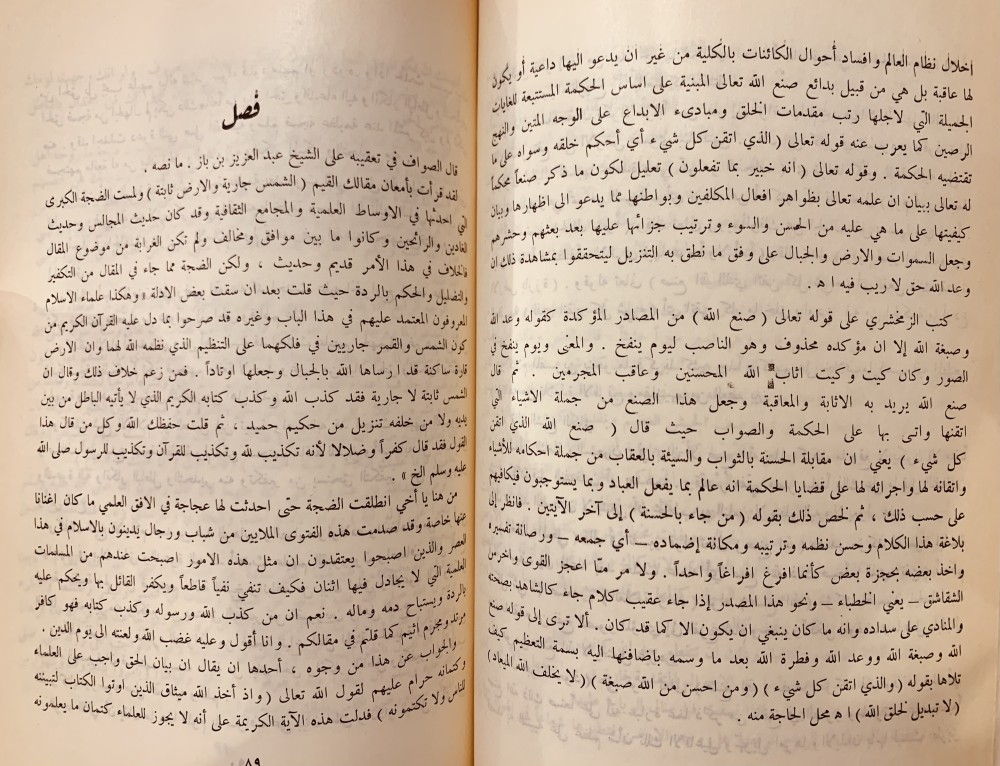 إخلال نظام العالم وافساد أحوال الكائنات بالكلية من غير ان يدعو اليها داعية أو يكون
لها عاقبة بل هي من قبيل بدائع صنع الله تعالى المبنية على اساس الحكمة المستتبعة للغايات
الجميلة التي لاجلها رتب مقدمات الخلق ومبادىء الابداع على الوجه المتين والنهج
الرصين كما يعرب عنه قوله تعالى ( الذي اتقن كل شيء أي أحكم خلقه وسواه على ما
تقتضيه الحكمة . وقوله تعالى ( انه خبير بما تفعلون ) تعليل لكون ما ذكر صنعاً محكماً
له تعالى ببيان ان علمه تعالى بظواهر افعال المكلفين وبواطنها مما يدعو الى اظهارها وبيان
كيفيتها على ما هي عليه من الحسن والسوء وترتيب جزائها عليها بعد بعثهم وحشرهم
وجعل السموات والارض والجبال على وفق ما نطق به التنزيل ليتحققوا بمشاهدة ذلك ان
وعد الله حق لا ريب فيه ا ه .
كتب الزمخشري على قوله تعالى ( صنع الله ) من المصادر المؤكدة كقوله وعد الله
وصبغة الله إلا ان مؤكده محذوف وهو الناصب ليوم ينفخ . والمعنى ويوم ينفخ في
الصور وكان كيت وكيت اثاب الله المحسنين وعاقب المجرمين . ثم قال
صنع الله يريد به الاثابة والمعاقبة وجعل هذا الصنع من جملة الاشياء التي
اتقنها واتى بها على الحكمة والصواب حيث قال ( صنع الله الذي اتقن
كل شيء ) يعني ان مقابلة الحسنة بالثواب والسيئة بالعقاب من جملة احكامه للأشياء
واتقانه لها واجرائه لها على قضايا الحكمة انه عالم بما يفعل العباد وبما يستوجبون فيكافيهم
على حسب ذلك ، ثم لخص ذلك بقوله ( من جاء بالحسنة ) إلى آخر الآيتين . فانظر إلى
بلاغة هذا الكلام وحسن نظمه وترتيبه ومكانة إضماده ـ أي جمعه ـ ورصانة تفسيره
واخذ بعضه بحجزة بعض كأنما افرغ افراغاً واحداً . ولا مر منّا اعجز القوى واخرس
الشقاشق ـ يعني الخطباء ـ ونحو هذا المصدر إذا جاء عقيب كلام جاء كالشاهد بصحته
والمنادي على سداده وانه ما كان ينبغي ان يكون الا كما قد كان . ألا ترى إلى قوله صنع
الله وصبغة الله ووعد الله وفطرة الله بعد ما وسمه باضافتها اليه بسمة التعظيم كيف
تلاها بقوله ( والذي اتقن كل شيء ) ( ومن احسن من الله صبغة ) ( لا يخلف الله الميعاد )
( لا تبديل لخلق الله ) ا ه محل الحاجة منه .
فصل
قال الصواف في تعقيبه على الشيخ عبد العزيز بن باز . ما نصه .
لقد قرأت بأمعان مقالك القيم ( الشمس جارية والارض ثابتة ) ولمست الضجة الكبرى
التي احدثها في الاوساط العلمية والمجامع الثقافية وقد كان حديث المجالس وحديث
الغادين والرائحين وكانوا ما بين موافق ومخالف ولم تكن الغرابة من موضوع المقال
فالخلاف في هذا الأمر قديم وحديث ، ولكن الضجة مما جاء في المقال من التكفير
والتضليل والحكم بالردة حيث قلت بعد ان سقت بعض الادلة « وهكذا علماء الاسلام
المعروفون المعتمد عليهم في هذا الباب وغيره قد صرحوا بما دل عليه القرآن الكريم من
كون الشمس والقمر جاريين في فلكهما على التنظيم الذي نظمه الله لهما وان الارض
قارة ساكنة قد ارساها الله بالجبال وجعلها اوتاداً . فمن زعم خلاف ذلك وقال ان
الشمس ثابتة لا جارية فقد كذب الله وكذب كتابه الكريم الذي لا يأتيه الباطل من بين
يديه ولا من خلفه تنزيل من حكيم حميد ، ثم قلت حفظك الله وكل من قال هذا
القول فقد قال كفراً وضلالا لأنه تكذيب لله وتكذيب للقرآن وتكذيب للرسول صلى الله
عليه وسلم الخ » .
من هنا يا أخي انطلقت الضجة حتى احدثت لها عجاجة في الافق العلمي ما كان اغنانا
عنها خاصة وقد صدمت هذه الفتوى الملايين من شباب ورجال يدينون بالاسلام في هذا
العصر والذين اصبحوا يعتقدون ان مثل هذه الامور اصبحت عندهم من المسلمات
العلمية التي لا يجادل فيها اثنان فكيف تنفي نفياً قاطعاً ويكفر القائل بها ويحكم عليه
بالردة ويستباح دمه وماله . نعم ان من كذب الله ورسوله وكذب كتابه فهو كافر
مرتد ومجرم اثيم كما قلتم في مقالكم . وانا أقول وعليه غضب الله ولعنته الى يوم الدين .
والجواب عن هذا من وجوه ، أحدها ان يقال ان بيان الحق واجب على العلماء
وكتمانه حرام عليهم لقول الله تعالى ( واذ أخذ الله ميثاق الذين اوتوا الكتاب لتبيننه
للناس ولا تكتمونه ) فدلت هذه الآية الكريمة على أنه لا يجوز للعلماء كتمان ما يعلمونه
٨٩